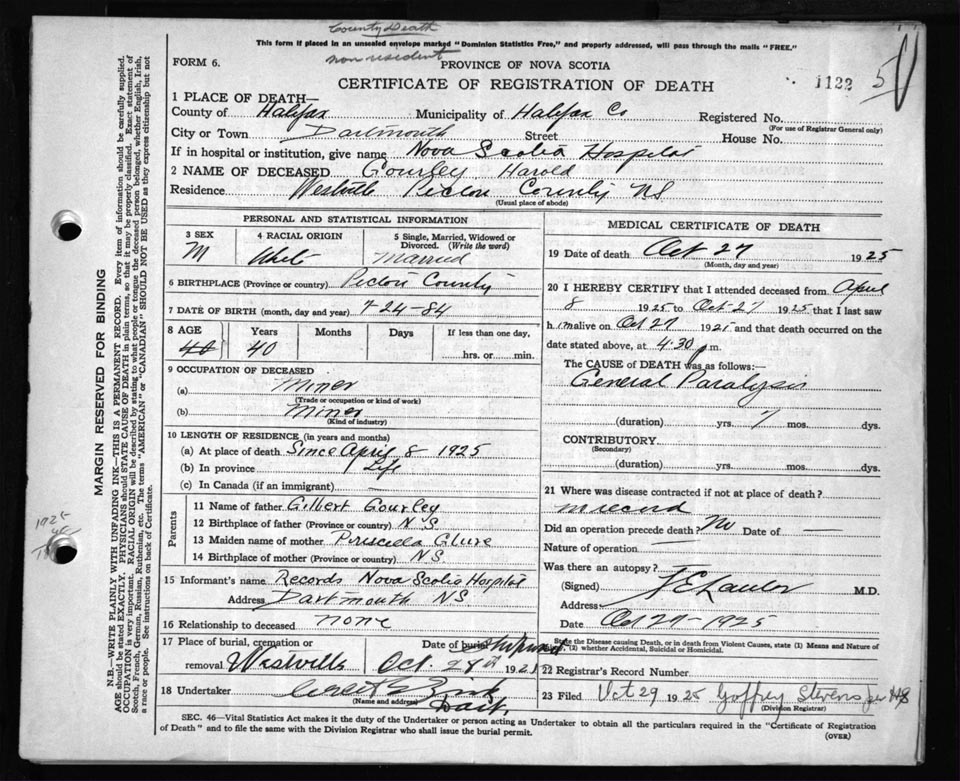 County Death
This form if placed in an unsealed envelope marked "Dominion Statistics Free," and properly addressed, will pass through the mails "FREE."
non resident
FORM 6. PROVINCE OF NOVA SCOTIA
CERTIFICATE OF REGISTRATION OF DEATH 1122 5
1 PLACE OF DEATH—
County of Halifax Municipality of Halifax Co Registered No.
(For use of Registrar General only)
City or Town Dartmouth Street House No.
If in hospital or institution, give name Nova Scotia Hospital
2 NAME OF DECEASED Gourley Harold
Residence Westville Pictou County NS
(Usual place of abode)
PERSONAL AND STATISTICAL INFORMATION
3 SEX 4 RACIAL ORIGIN 5 Single, Married, Widowed or Divorced. (Write the word)
M Married
6 BIRTHPLACE (Province or country) Pictou County
7 DATE OF BIRTH (month, day and year) 24-84
8 AGE Years Months Days If less than one day,
40 40 hrs. or min.
9 OCCUPATION OF DECEASED
(a) Miner
(Trade or occupation or kind of work)
(b) Miner
(Kind of industry)
10 LENGTH OF RESIDENCE (in years and months)
(a) At place of death Since April 8 1925
(b) In province Life
(c) In Canada (if an immigrant) —
Parents
11 Name of father Gilbert Gourley
12 Birthplace of father (Province or country) N.S.
13 Maiden name of mother Priscilla
14 Birthplace of mother (Province or country) N.S.
15 Informant's name Records Nova Scotia Hospital
Address Dartmouth N.S.
16 Relationship to deceased none
17 Place of burial, cremation or Date of burial shipment
removal Westville Oct. 28th 192
18 Undertaker
(Name and address) Dart.
MEDICAL CERTIFICATE OF DEATH
19 Date of death Oct 27 1925
(Month, day and year)
20 I HEREBY CERTIFY that I attended deceased from April
8 1925 to Oct 27 1925 that I last saw
him alive on Oct 27 192 and that death occurred on the
date stated above, at 4:30 p.m.
The CAUSE of DEATH was as follows:—
General Paralysis
(duration) yrs. mos. dys.
CONTRIBUTORY
(Secondary)
(duration) yrs. mos. dys.
21 Where was disease contracted if not at place of death?
record
Did an operation precede death? No Date of —
Nature of operation —
Was there an autopsy?
(Signed) Lawlor M.D.
Address
Date Oct 27-1925
State the Disease causing Death, or in death from Violent Causes, state (1) Means and Nature of Injury, (2) whether Accidental, Suicidal or Homicidal.
22 Registrar's Record Number
23 Filed Oct 29 1925 Goffrey Stevens
(Division Registrar)
SEC. 46—Vital Statistics Act makes it the duty of the Undertaker or person acting as Undertaker to obtain all the particulars required in the "Certificate of Registration
of Death" and to file the same with the Division Registrar who shall issue the burial permit.
(OVER)
MARGIN RESERVED FOR BINDING
N.B.—WRITE PLAINLY WITH UNFADING INK—THIS IS A PERMANENT RECORD. Every item of information should be carefully supplied.
AGE should be stated EXACTLY. PHYSICIANS should STATE CAUSE OF DEATH in plain terms, so that it may be properly classified. Exact statement of
OCCUPATION is very important. RACIAL ORIGIN will be described by stating to what people or tongue the deceased person belonged, whether English, Irish,
Scotch, French, German, Russian, Ruthenian, etc. The terms "AMERICAN" or "CANADIAN" SHOULD NOT BE USED as they express citizenship but not
a race or people. See instructions on back of Certificate.
1925